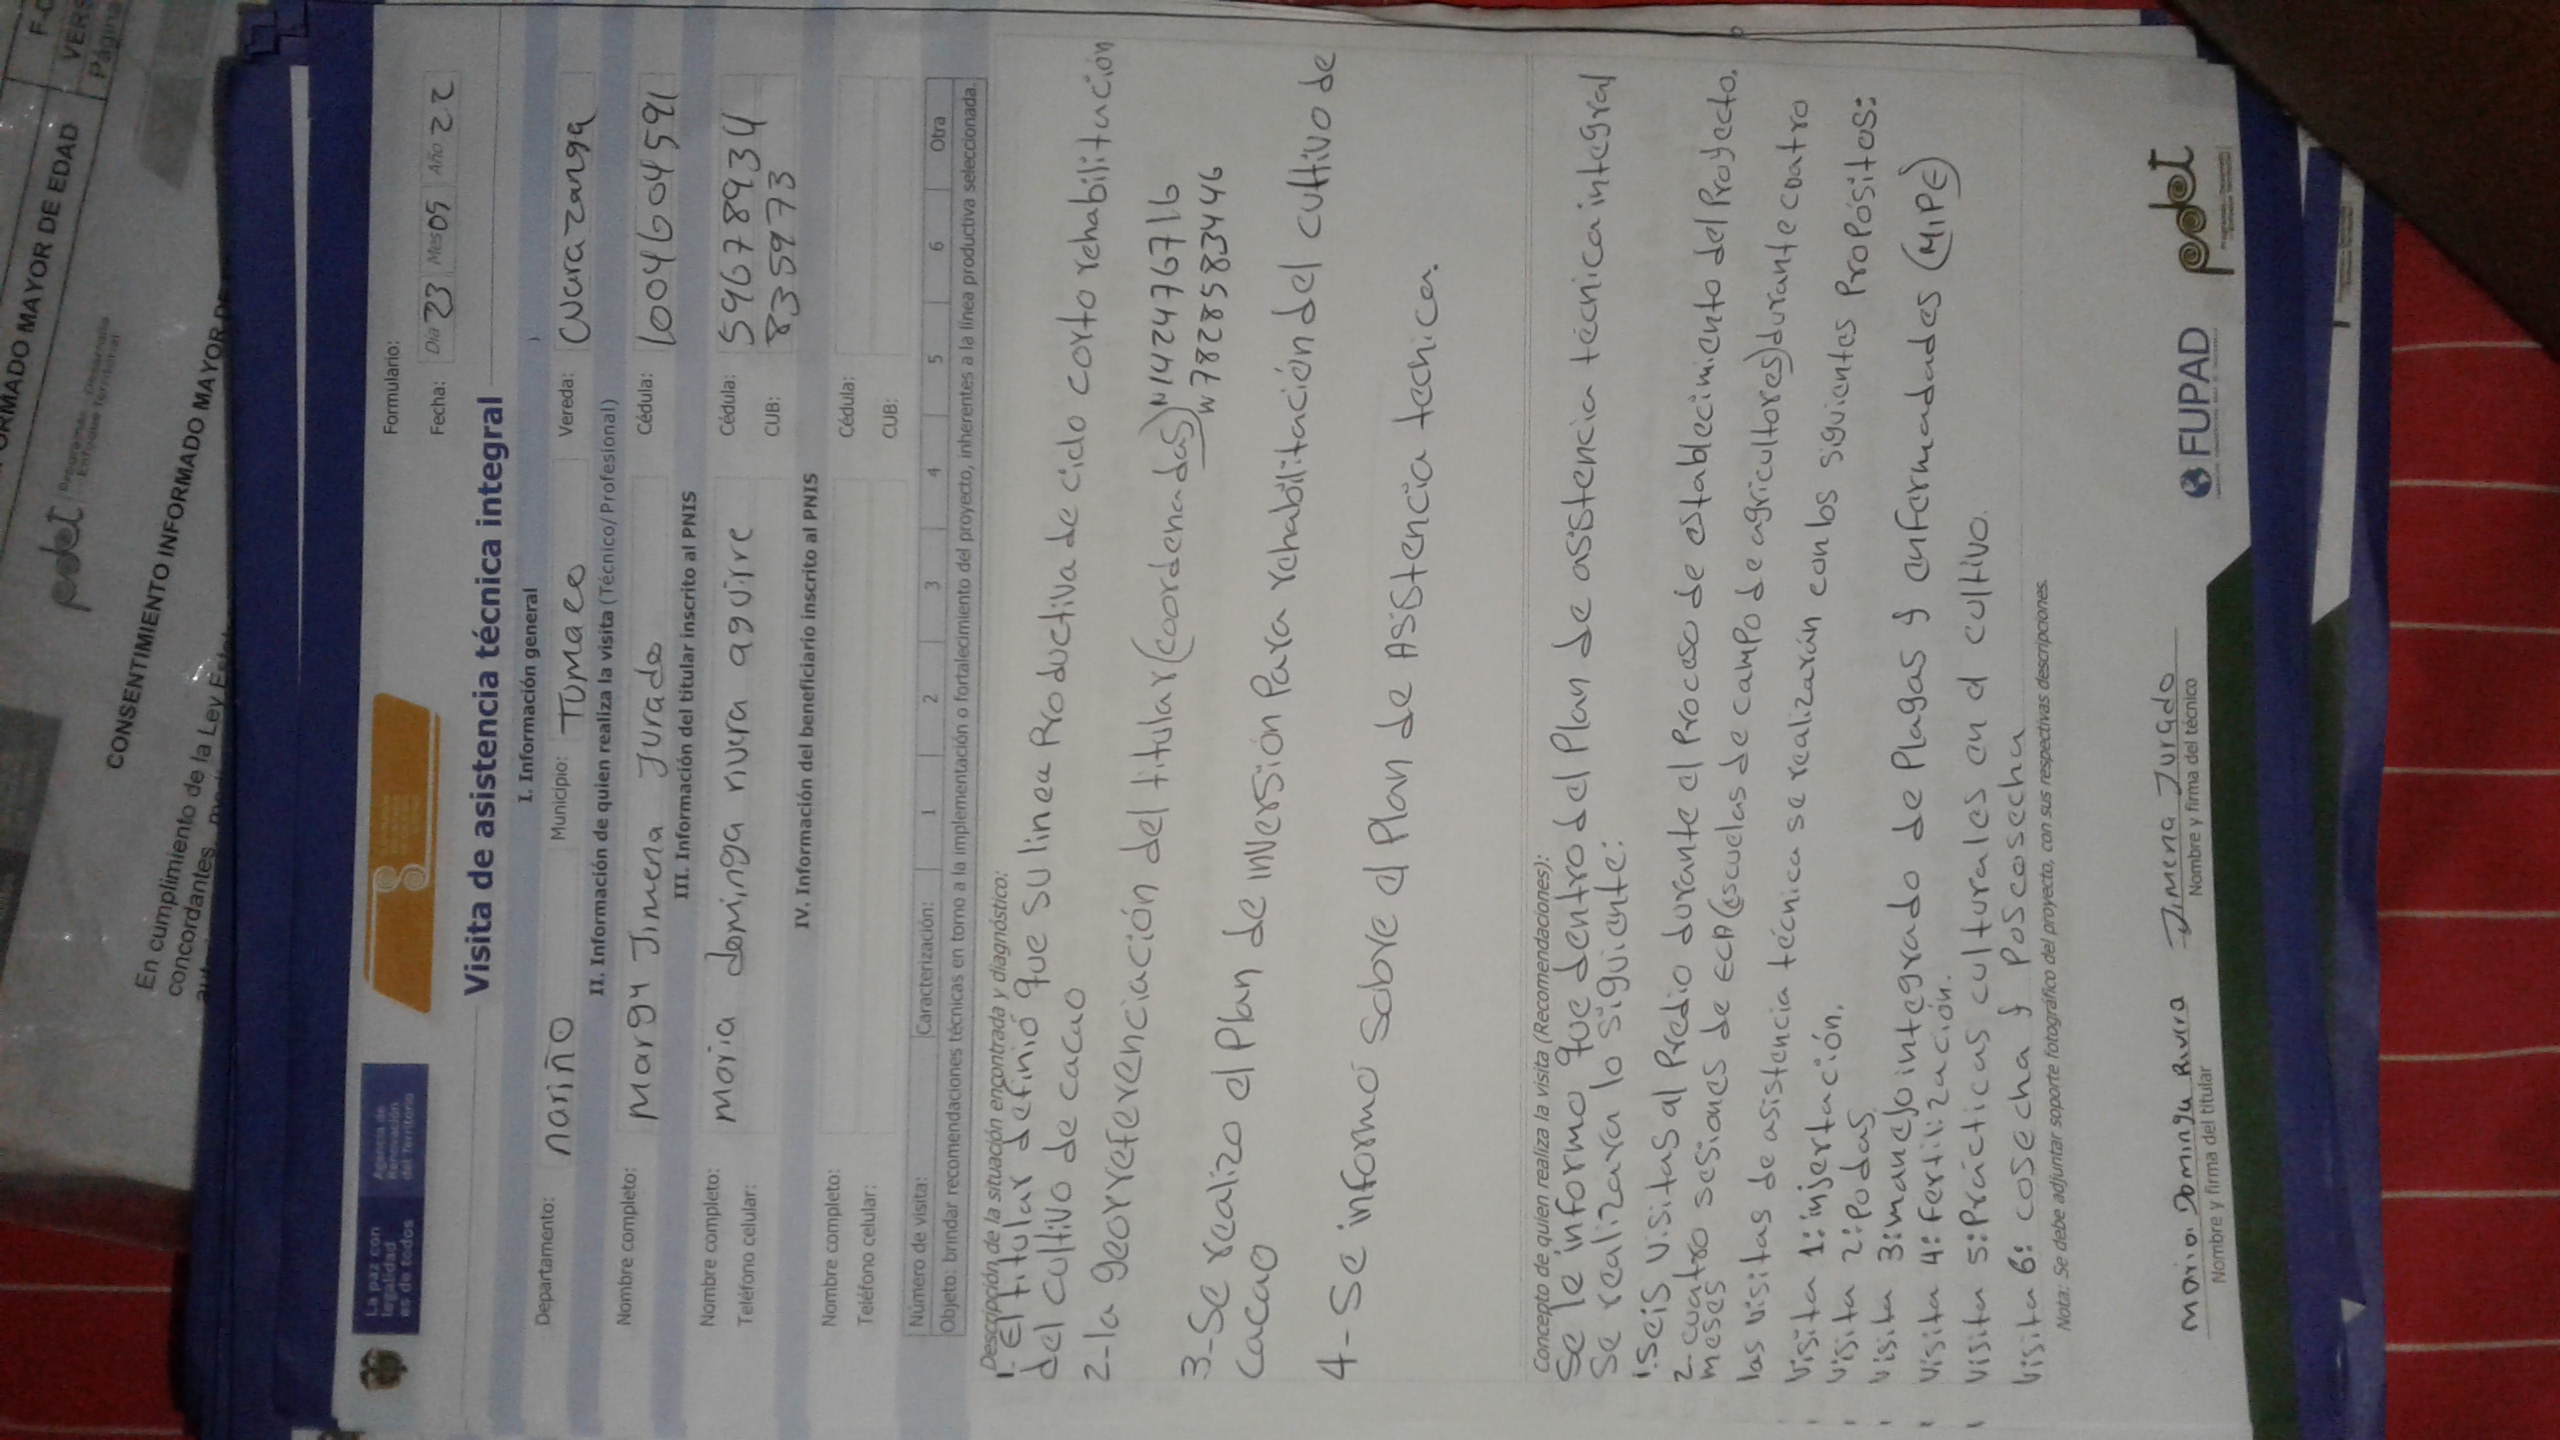 F.O
VERS
Página
ORMADO MAYOR DE EDAD
pdet
CONSENTIMIENTO INFORMADO MAYOR DE
En cumplimiento de la Ley
concordantes,
La paz con
legalidad
es de todos
Agencia de
Renovación
del Territorio
Formulario:
Fecha: Día 23 Mes 05 Año 22
Visita de asistencia técnica integral
I. Información general
Departamento: nariño Municipio: Tumaco Vereda: Guarazanga
II. Información de quien realiza la visita (Técnico/Profesional)
Nombre completo: Margy Jimena Jurado Cédula: 1004604591
III. Información del titular inscrito al PNIS
Nombre completo: maria dominga rivera aguirre Cédula: 596789934
Teléfono celular: CUB: 8359973
IV. Información del beneficiario inscrito al PNIS
Nombre completo: Cédula:
Teléfono celular: CUB:
Número de visita: Caracterización: 1 2 3 4 5 6 Otra
Objeto: brindar recomendaciones técnicas en torno a la implementación o fortalecimiento del proyecto, inherentes a la línea productiva seleccionada.
Descripción de la situación encontrada y diagnóstico:
1. El titular definió que su linea Productiva de ciclo corto rehabilitación
del cultivo de cacao
2-la georreferenciación del titular (coordenadas) N 142476716
W 7828583446
3-Se realizo el Plan de inversión Para rehabilitación del cultivo de
cacao
4- Se informo sobre el Plan de Asistencia technica.
Concepto de quien realiza la visita (Recomendaciones):
Se le informo que dentro del Plan de asistencia técnica integral
Se realizara lo siguiente:
1. Seis visitas al Predio durante el Proceso de establecimiento del Proyecto.
2. cuatro sesiones de ECA (escuelas de campo de agricultores) durante cuatro
meses
las visitas de asistencia técnica se realizarán con los siguientes Propósitos:
Visita 1: injertación.
Visita 2: Podas.
Visita 3: manejo integrado de Plagas y enfermedades (MIPE)
Visita 4: Fertilización.
Visita 5: Prácticas culturales en el cultivo.
Visita 6: cosecha y Poscosecha
Nota: Se debe adjuntar soporte fotográfico del proyecto, con sus respectivas descripciones.
Maria Dominga Rivera
Nombre y firma del titular
Jimena Jurado
Nombre y firma del técnico
FUPAD
pdet